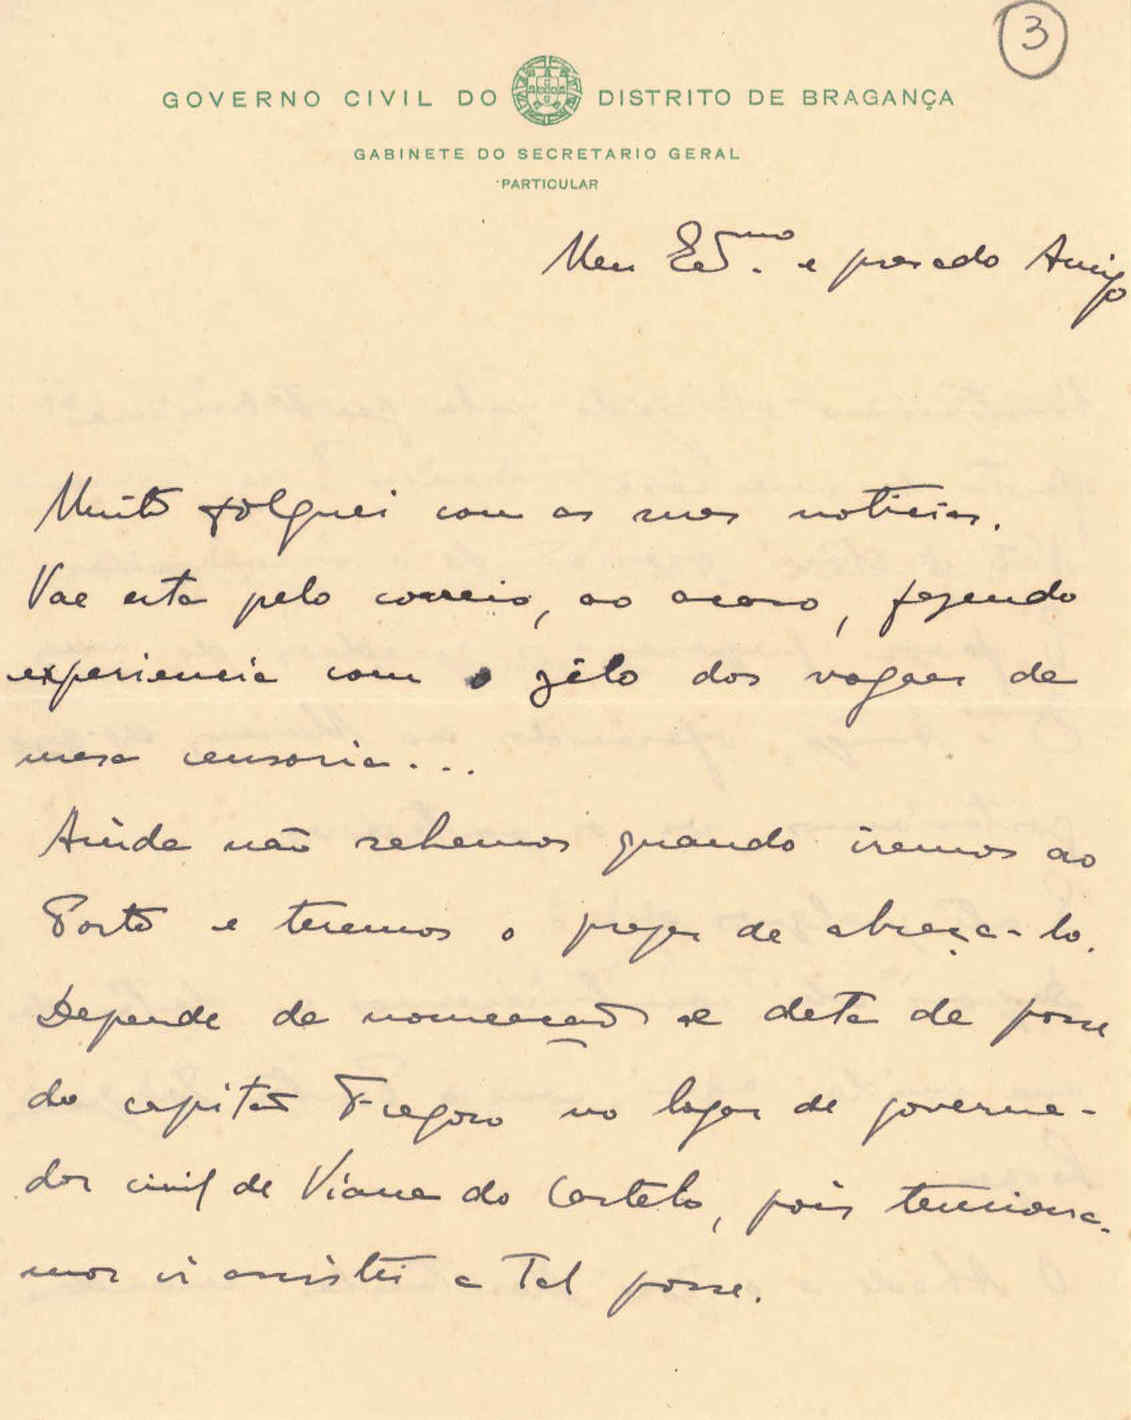 3
GOVERNO CIVIL DO DISTRITO DE BRAGANÇA
GABINETE DO SECRETARIO GERAL
PARTICULAR
Meu e presado Amigo
Muito folguei com as suas noticias.
Vae esta pelo correio, ao acaso, fazendo
experiencia com o zêlo dos vogaes da
mesa censoria...
Ainda não sabemos quando iremos ao
Porto e teremos o prazer de abraça-lo.
Depende da nomeação e data de posse
do capitão Fragoso no lugar de governa-
dor civil de Viana do Castelo, pois tenciona-
mos ir assistir a tal posse.